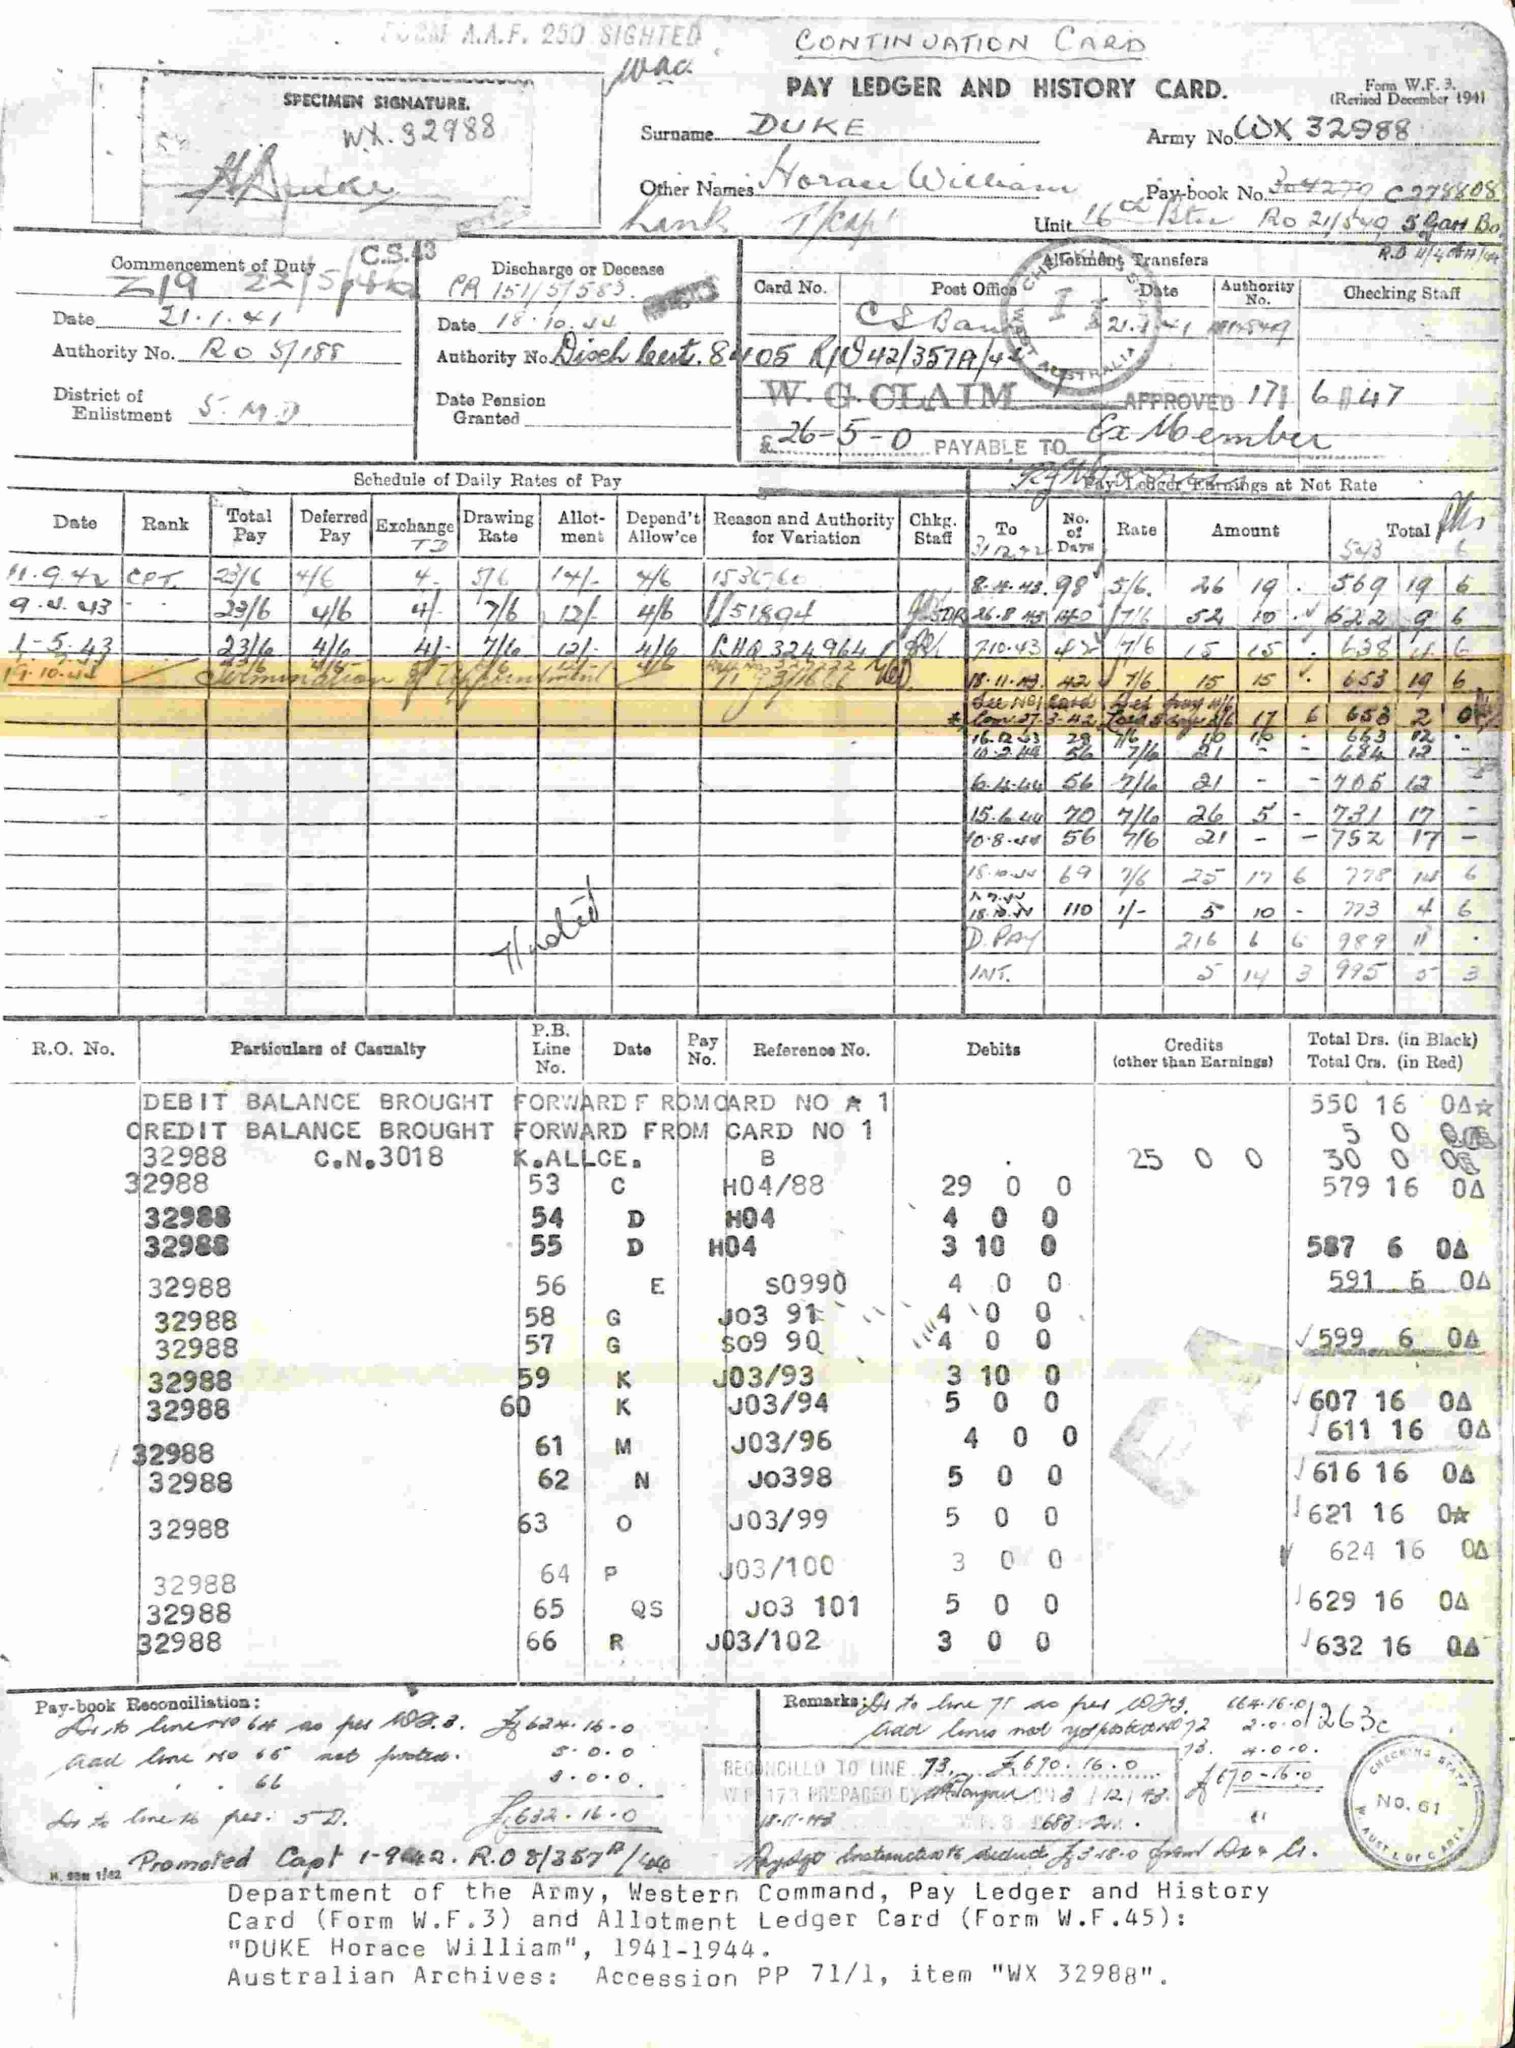 FORM A.A.F. 250 SIGHTED
CONTINUATION CARD
PAY LEDGER AND HISTORY CARD.
Form W.F. 3.
(Revised December 1941
SPECIMEN SIGNATURE.
WX. 32988
Surname DUKE
Army No. WX 32988
Other Names Horace William
Pay-book No. 304270 C278808
Unit 16th RO 21/540 5 Garr Bn
C.S. 43
Commencement of Duty
22/5/40
Date 21.1.41
Authority No. RO 5/188
District of
Enlistment 5. M.D.
Discharge or Decease
PR 151/5/583
Date 18.10.44
Authority No. Disch Cert. 8405
Date Pension
Granted
Allotment Transfers
Card No. Post Office Date Authority No. Checking Staff
C S Bank 21.1.41
W. G. CLAIM APPROVED 17 6 47
£ 26-5-0 PAYABLE TO Ex Member
Schedule of Daily Rates of Pay
Pay Ledger Earnings at Net Rate
Date Rank Total Pay Deferred Pay Exchange Drawing Rate Allot-ment Depend't Allow'ce Reason and Authority for Variation Chkg. Staff To No. of Days Rate Amount Total
11.9.42 CPT. 23/6 4/6 4- 5/6 14/- 4/6 153660 8.4.43 98 5/6. 26 19 . 569 19 6
9.4.43 - - 23/6 4/6 4/- 7/6 12/- 4/6 51894 26.8.43 140 7/6 52 10 . 622 9 6
1-5.43 23/6 4/6 4/- 7/6 12/- 4/6 LHQ 324964 7.10.43 42 7/6 15 15 . 638 4 6
19.10.44 Termination of Appointment 18.11.43 42 7/6 15 15 . 653 19 6
See No 1 Card
17 6 653 2 0
16.12.43 28 7/6 10 10 . 663 12 .
10.2.44 56 7/6 21 - - 684 12 -
6.4.44 56 7/6 21 - - 705 12
15.6.44 70 7/6 26 5 - 731 17 -
10.8.44 56 7/6 21 - - 752 17 -
18.10.44 69 7/6 25 17 6 778 14 6
18.10.44 110 1/- 5 10 - 773 4 6
D. PAY 216 6 6 989 11 .
INT. 5 14 3 995 5 3
R.O. No. Particulars of Casualty P.B. Line No. Date Pay No. Reference No. Debits Credits (other than Earnings) Total Drs. (in Black) Total Crs. (in Red)
DEBIT BALANCE BROUGHT FORWARD F ROMCARD NO 1 550 16 0Δ☆
CREDIT BALANCE BROUGHT FORWARD FROM CARD NO 1 5 0
32988 C.N.3018 K.ALLCE. B 25 0 0 30 0 0
32988 53 C H04/88 29 0 0 579 16 0Δ
32988 54 D H04 4 0 0
32988 55 D H04 3 10 0 587 6 0Δ
32988 56 E S0990 4 0 0 591 6 0Δ
32988 58 G J03 91 4 0 0
32988 57 G S09 90 4 0 0 599 6 0Δ
32988 59 K J03/93 3 10 0
32988 60 K J03/94 5 0 0 607 16 0Δ
32988 61 M J03/96 4 0 0 611 16 0Δ
32988 62 N J0398 5 0 0 616 16 0Δ
32988 63 O J03/99 5 0 0 621 16 0☆
32988 64 P J03/100 3 0 0 624 16 0Δ
32988 65 QS J03 101 5 0 0 629 16 0Δ
32988 66 R J03/102 3 0 0 632 16 0Δ
Pay-book Reconciliation:
Drs to line No 64 as per W.F.3. £624.16.0
Add line No 65 not posted. 5.0.0
66 3.0.0.
£632.16.0
Promoted Capt 1-9-42. R.O 8/357A/44
Remarks: Drs to line 71 as per W.F.3. 664.16.0
Add lines not yet posted 72 2.0.0
73. 4.0.0.
£670-16.0
1263c
RECONCILED TO LINE 73. £670.16.0
W.F. 173 PREPARED BY ON 3/12/43.
18.11.43
CHECKING STAFF
No. 61
W. AUST. L OF C AREA
Department of the Army, Western Command, Pay Ledger and History
Card (Form W.F.3) and Allotment Ledger Card (Form W.F.45):
"DUKE Horace William", 1941-1944.
Australian Archives: Accession PP 71/1, item "WX 32988".